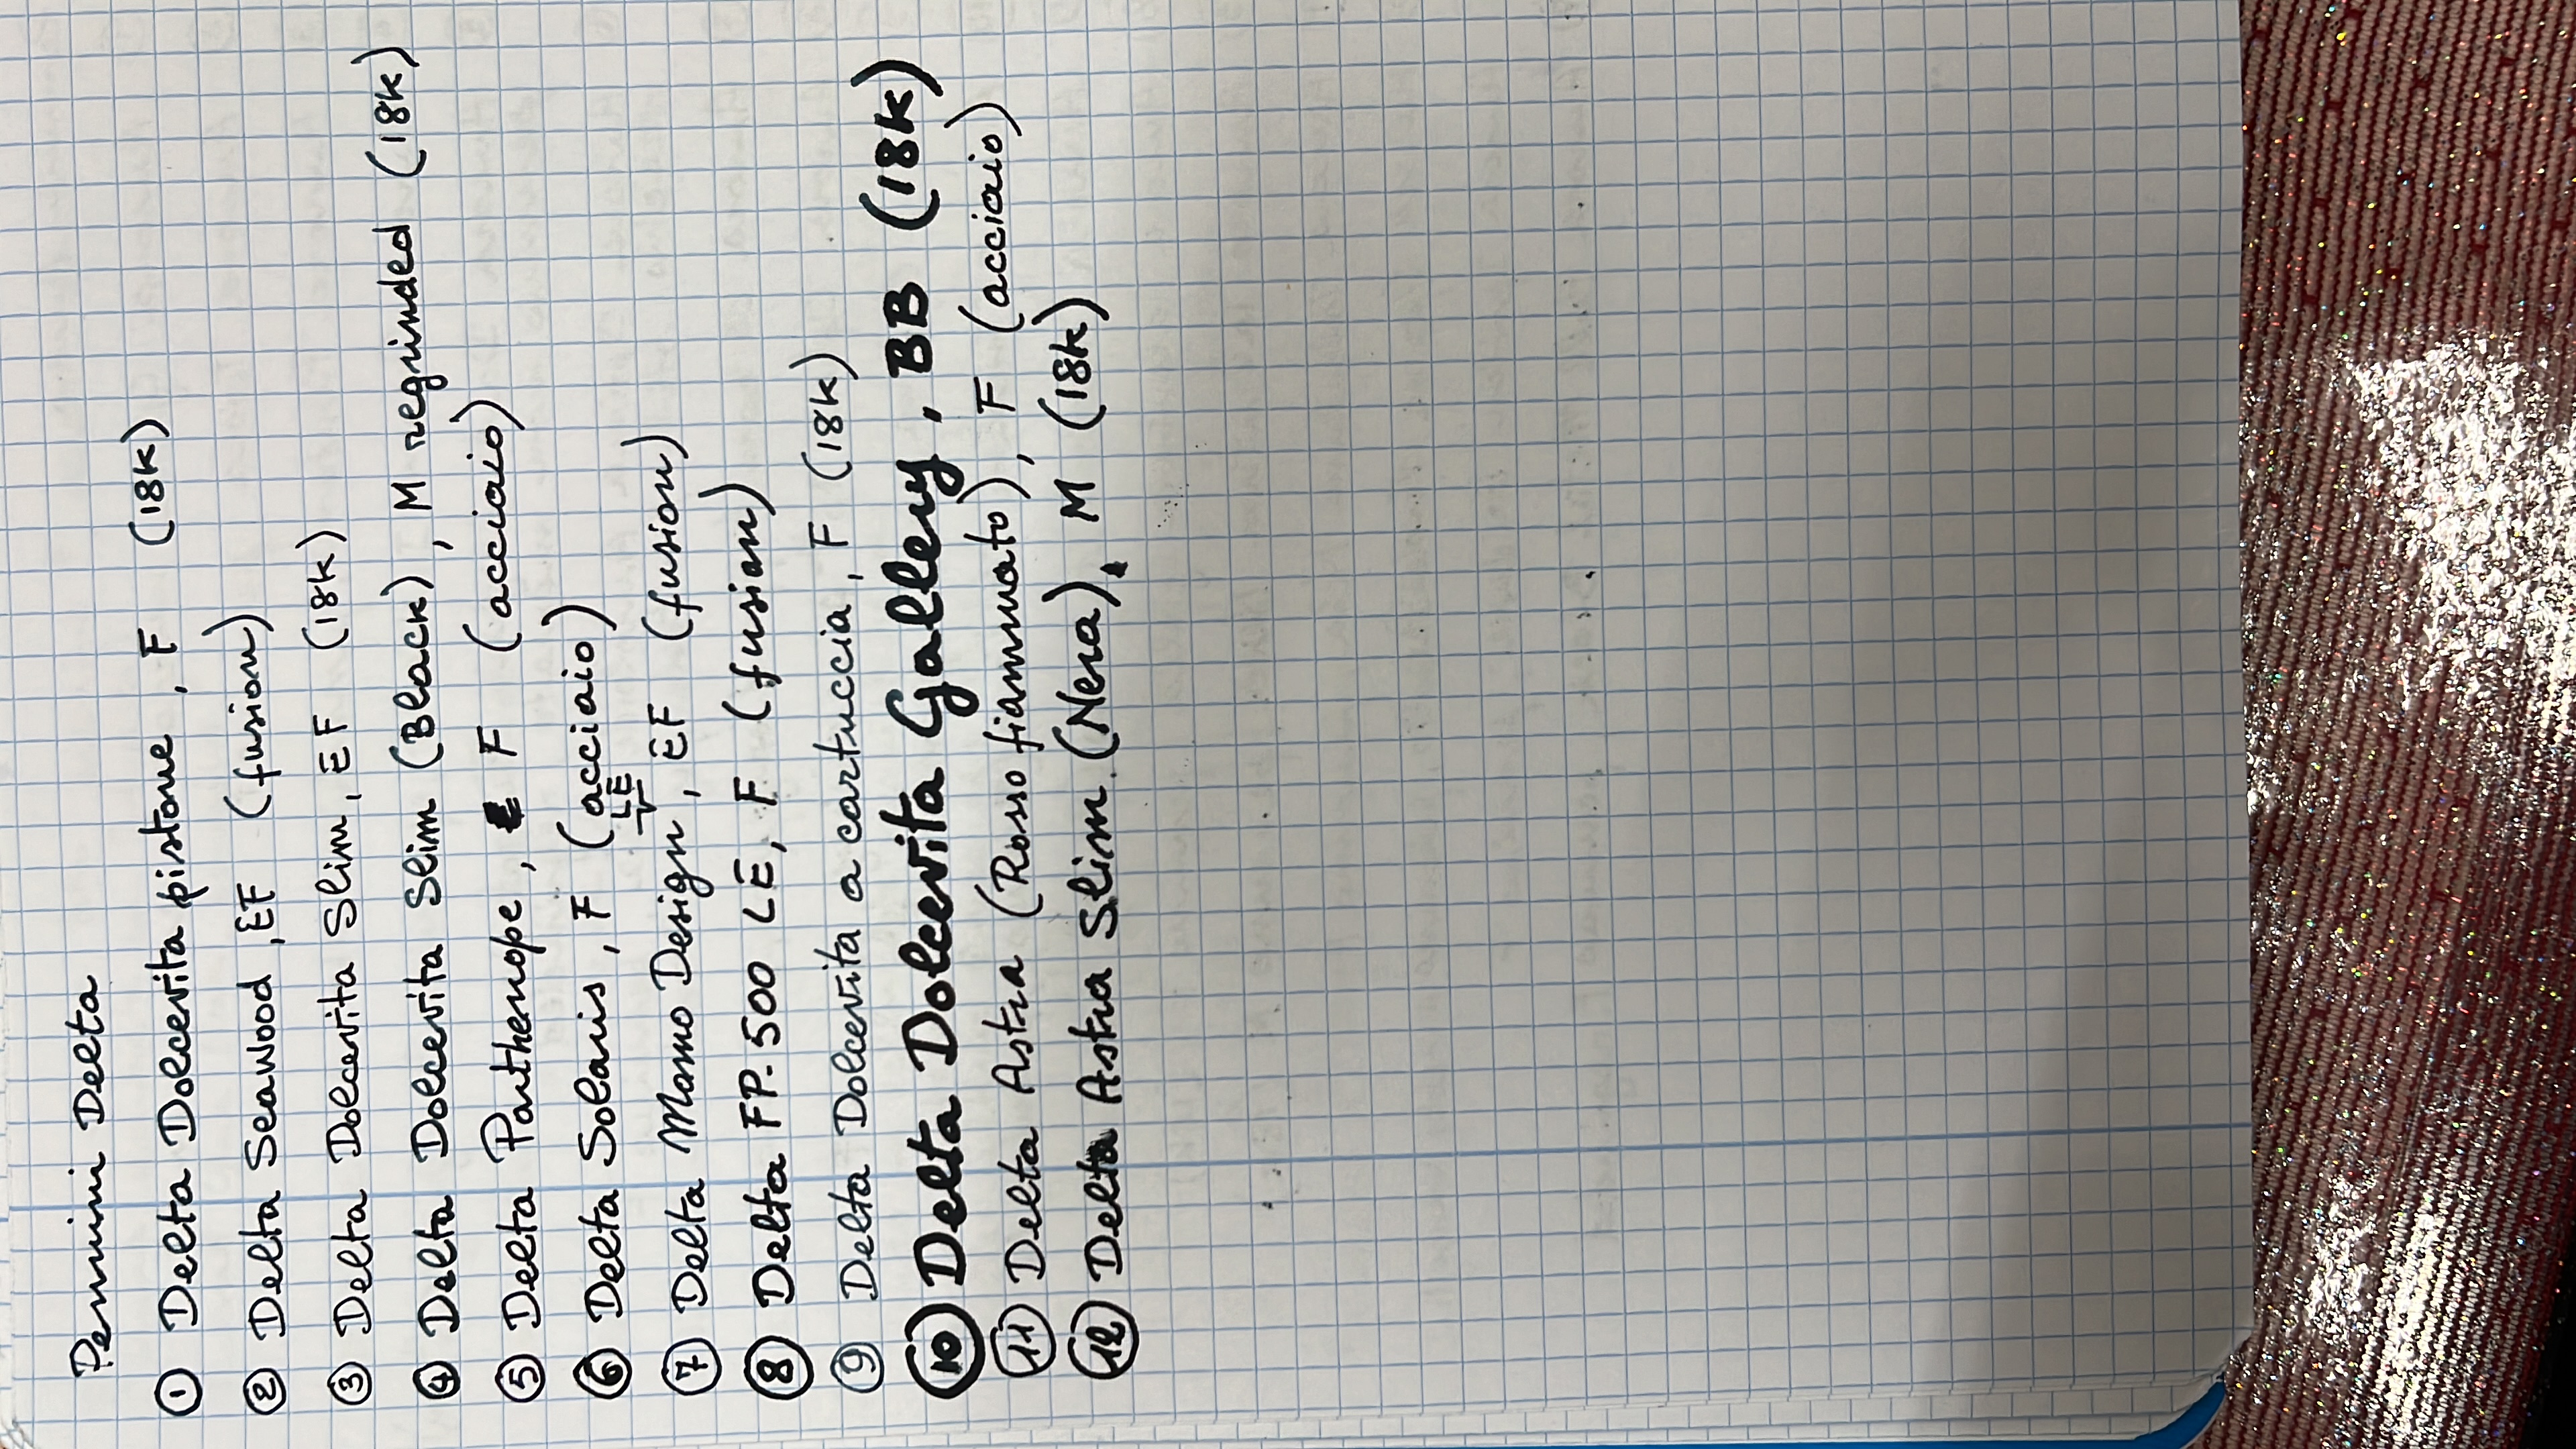 Pennini Delta
① Delta Dolcevita pistone, F (18k)
② Delta Seawood, EF (fusion)
③ Delta Dolcevita Slim, EF (18k)
④ Delta Dolcevita Slim (Black), M regrinded (18k)
⑤ Delta Parthenope, F (acciaio)
⑥ Delta Solaris, F (acciaio)
LE
⑦ Delta Momo Design, EF (fusion)
⑧ Delta FP. 500 LE, F (fusion)
⑨ Delta Dolcevita a cartuccia, F (18k)
⑩ Delta Dolcevita Galleny, BB (18k)
⑪ Delta Astra (Rosso fiammato), F (acciaio)
⑫ Delta Astra Slim (Nera), M (18k)